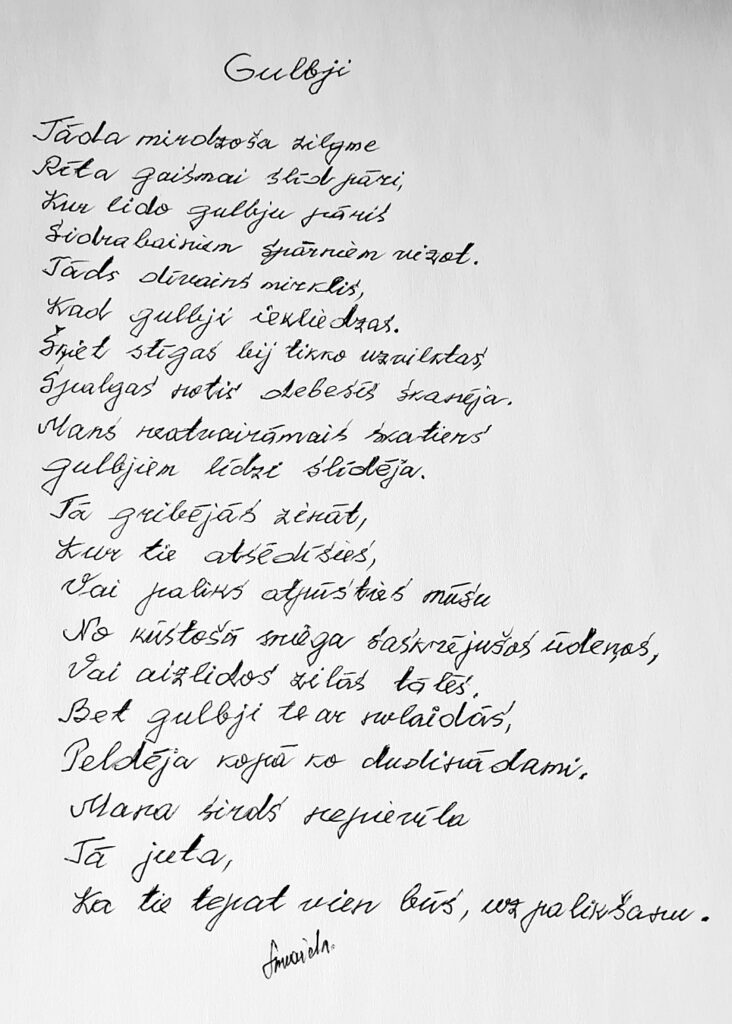 Gulbji
Tāda mirdzoša zilgme
Rīta gaismai slīd pāri,
Kur lido gulbju pāris
Sidrabainiem spārniem vizot.
Tāds dīvains mirklis,
Kad gulbji iekliedzas.
Šķiet stīgas bij tikko uzvilktas,
Spalgas notis debesīs skanēja.
Mans neatvairāmais skatiens
gulbjiem līdzi slīdēja.
Tā gribējās zināt,
Kur tie atsēdīsies,
Vai paliks atpūsties mūsu
No kūstošā sniega saskrējušos ūdeņos,
Vai aizlidos zilās tālēs.
Bet gulbji te ar nolaidās,
Peldēja kopā ko dudinādami.
Mana sirds nepievīla
Tā juta,
Ka tie tepat vien būs, uz palikšanu.